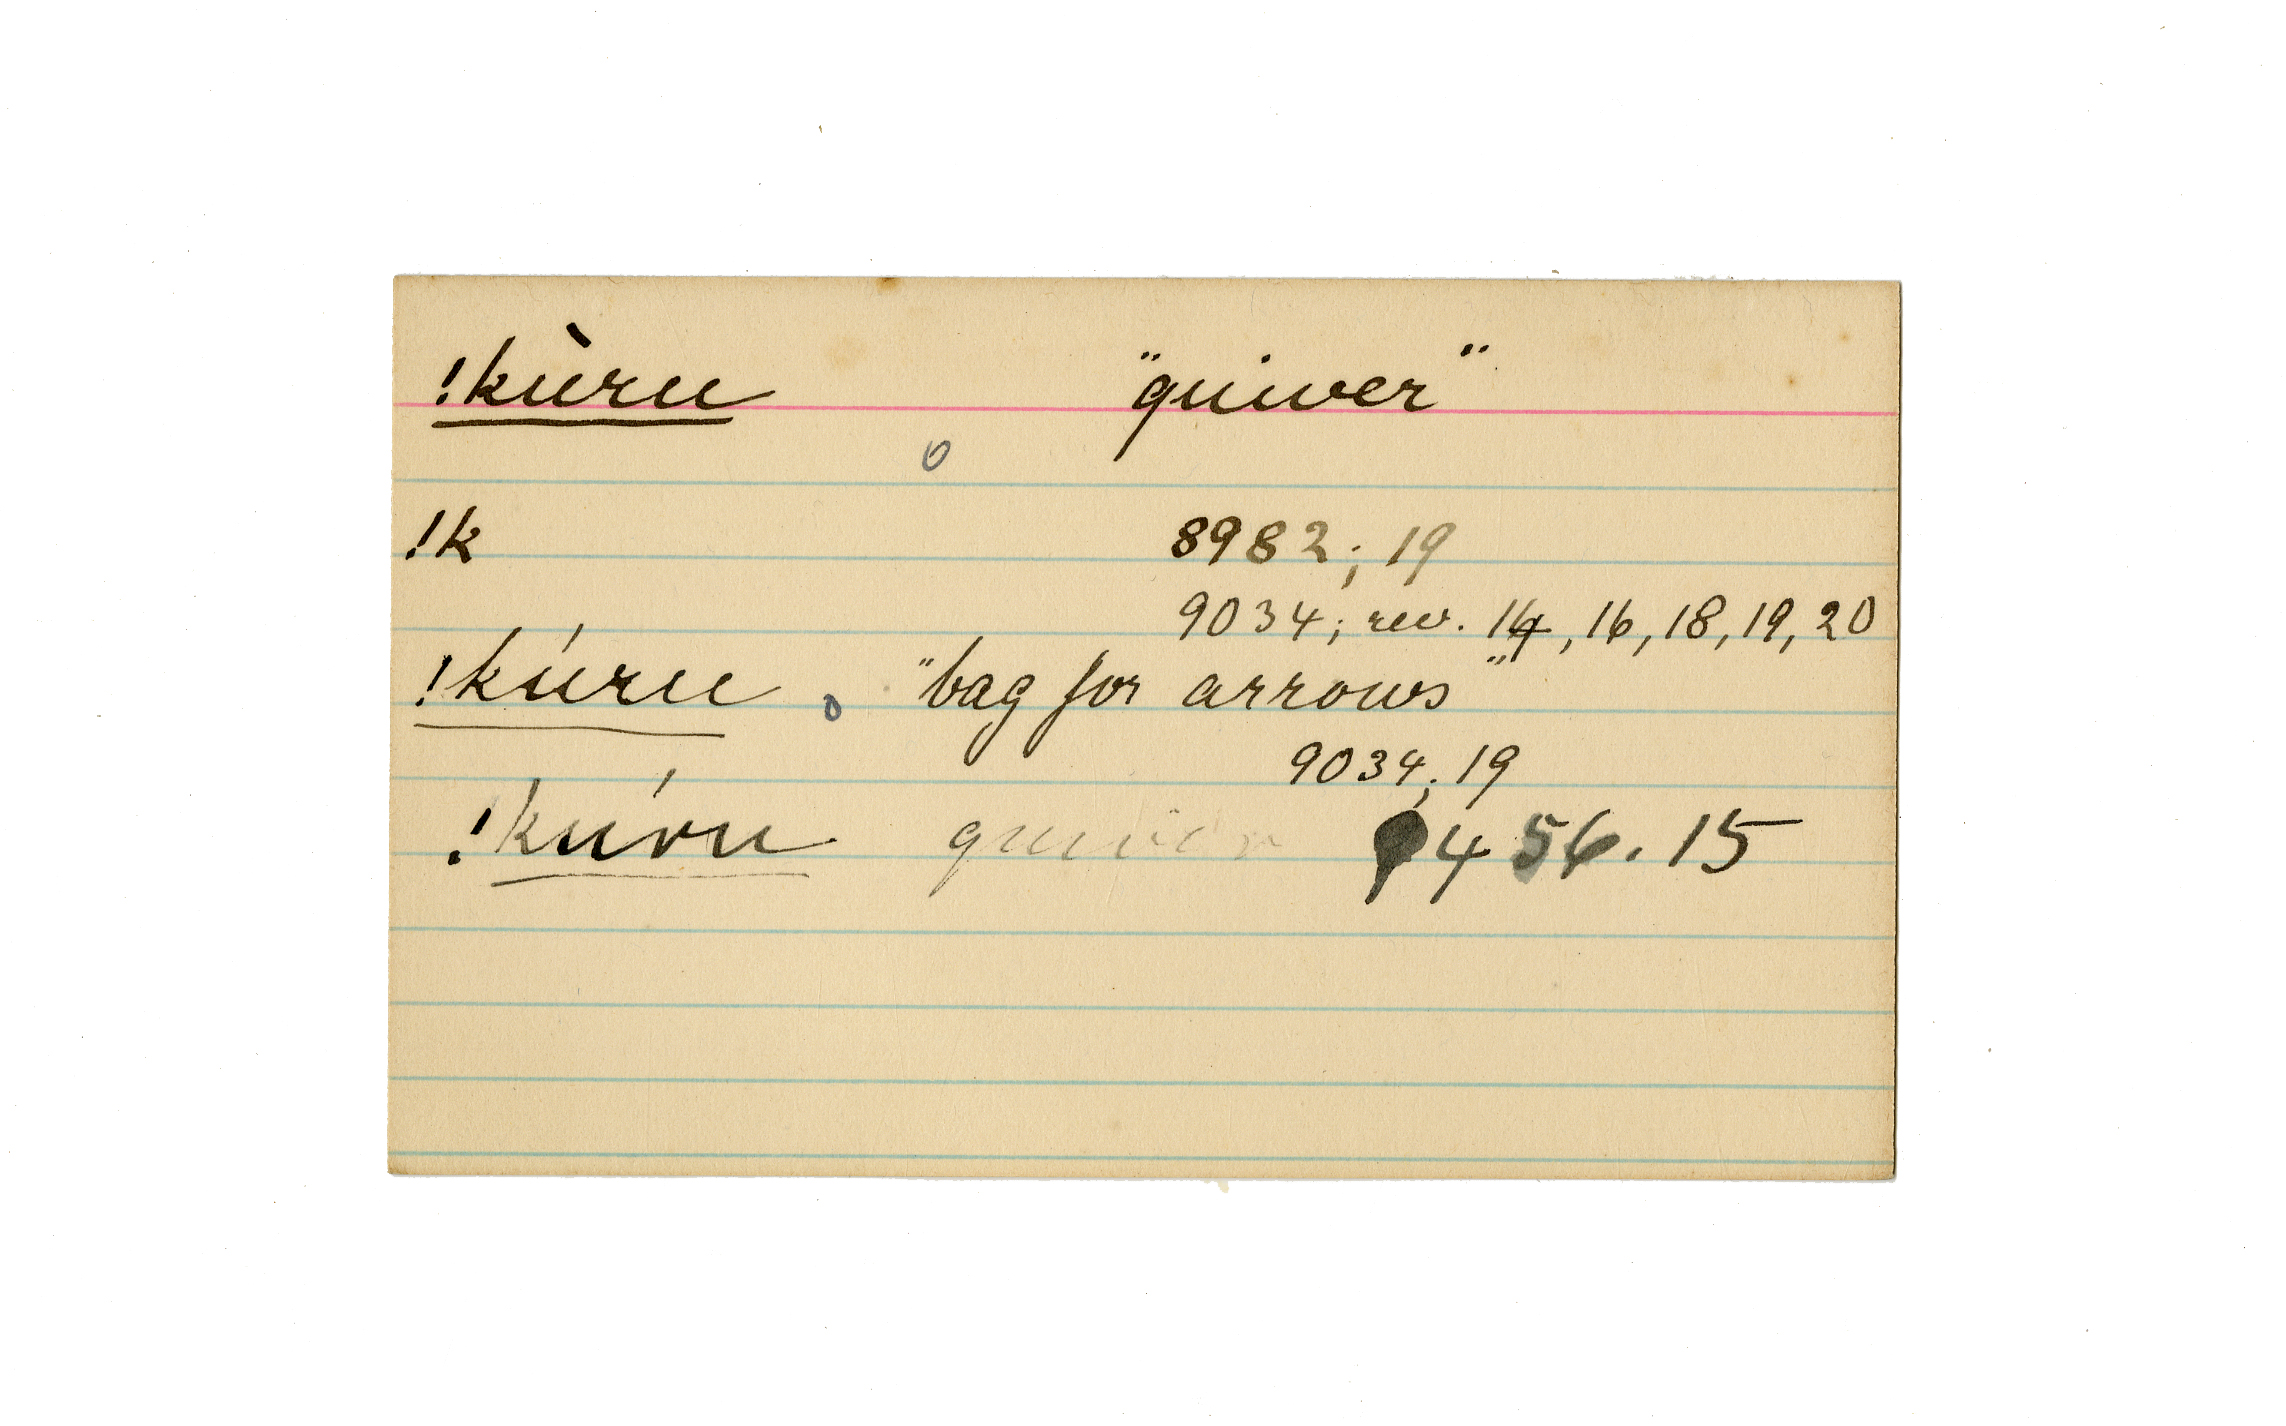 !kùru "quiver"
o
!k 8982; 19
9034; rev. 14, 16, 18, 19, 20
!kúru o "bag for arrows"
9034; 19
!kúru quiver 9456.15